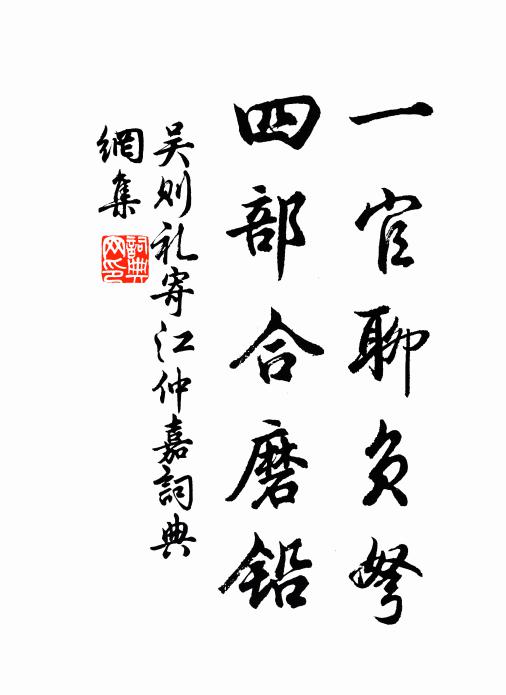 一官聊負弩
四部合磨鉛
吴则礼寄江仲嘉詞典
網集
詞典網印